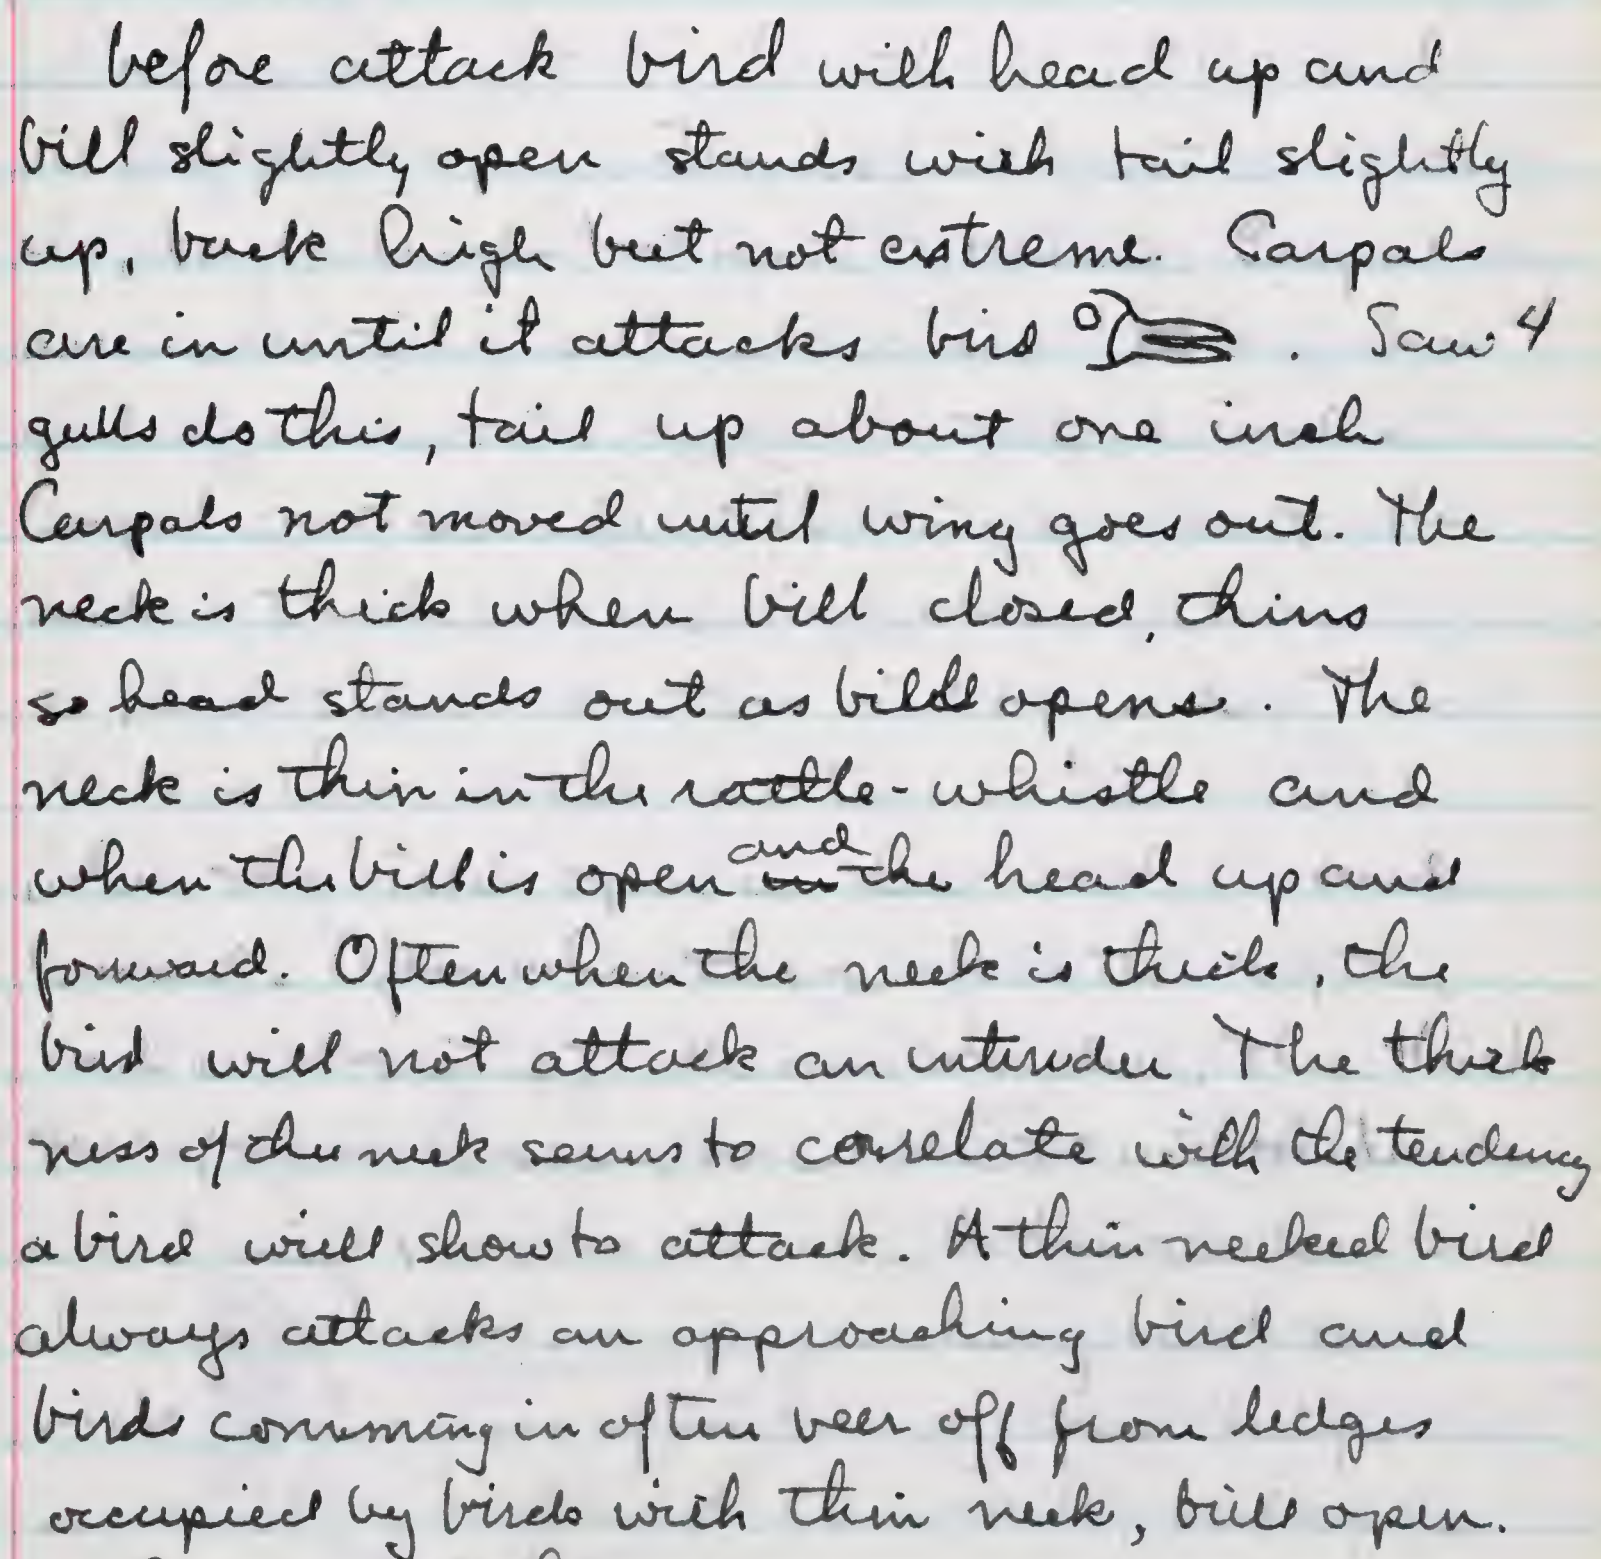 before attack bird with head up and
bill slightly open stands with tail slightly
up, back high but not extreme. Carpals
are in until it attacks bird . Saw 4
gulls do this, tail up about one inch
Carpals not moved until wing goes out. The
neck is thick when bill closed, thins
so head stands out as bill opens. The
neck is thin in the rattle-whistle and
when the bill is open and in the head up and
forward. Often when the neck is thick, the
bird will not attack an intruder. The thick
ness of the neck seems to correlate with the tendency
a bird will show to attack. A thin necked bird
always attacks an approaching bird and
birds comming in often veer off from ledges
occupied by birds with thin neck, bill open.